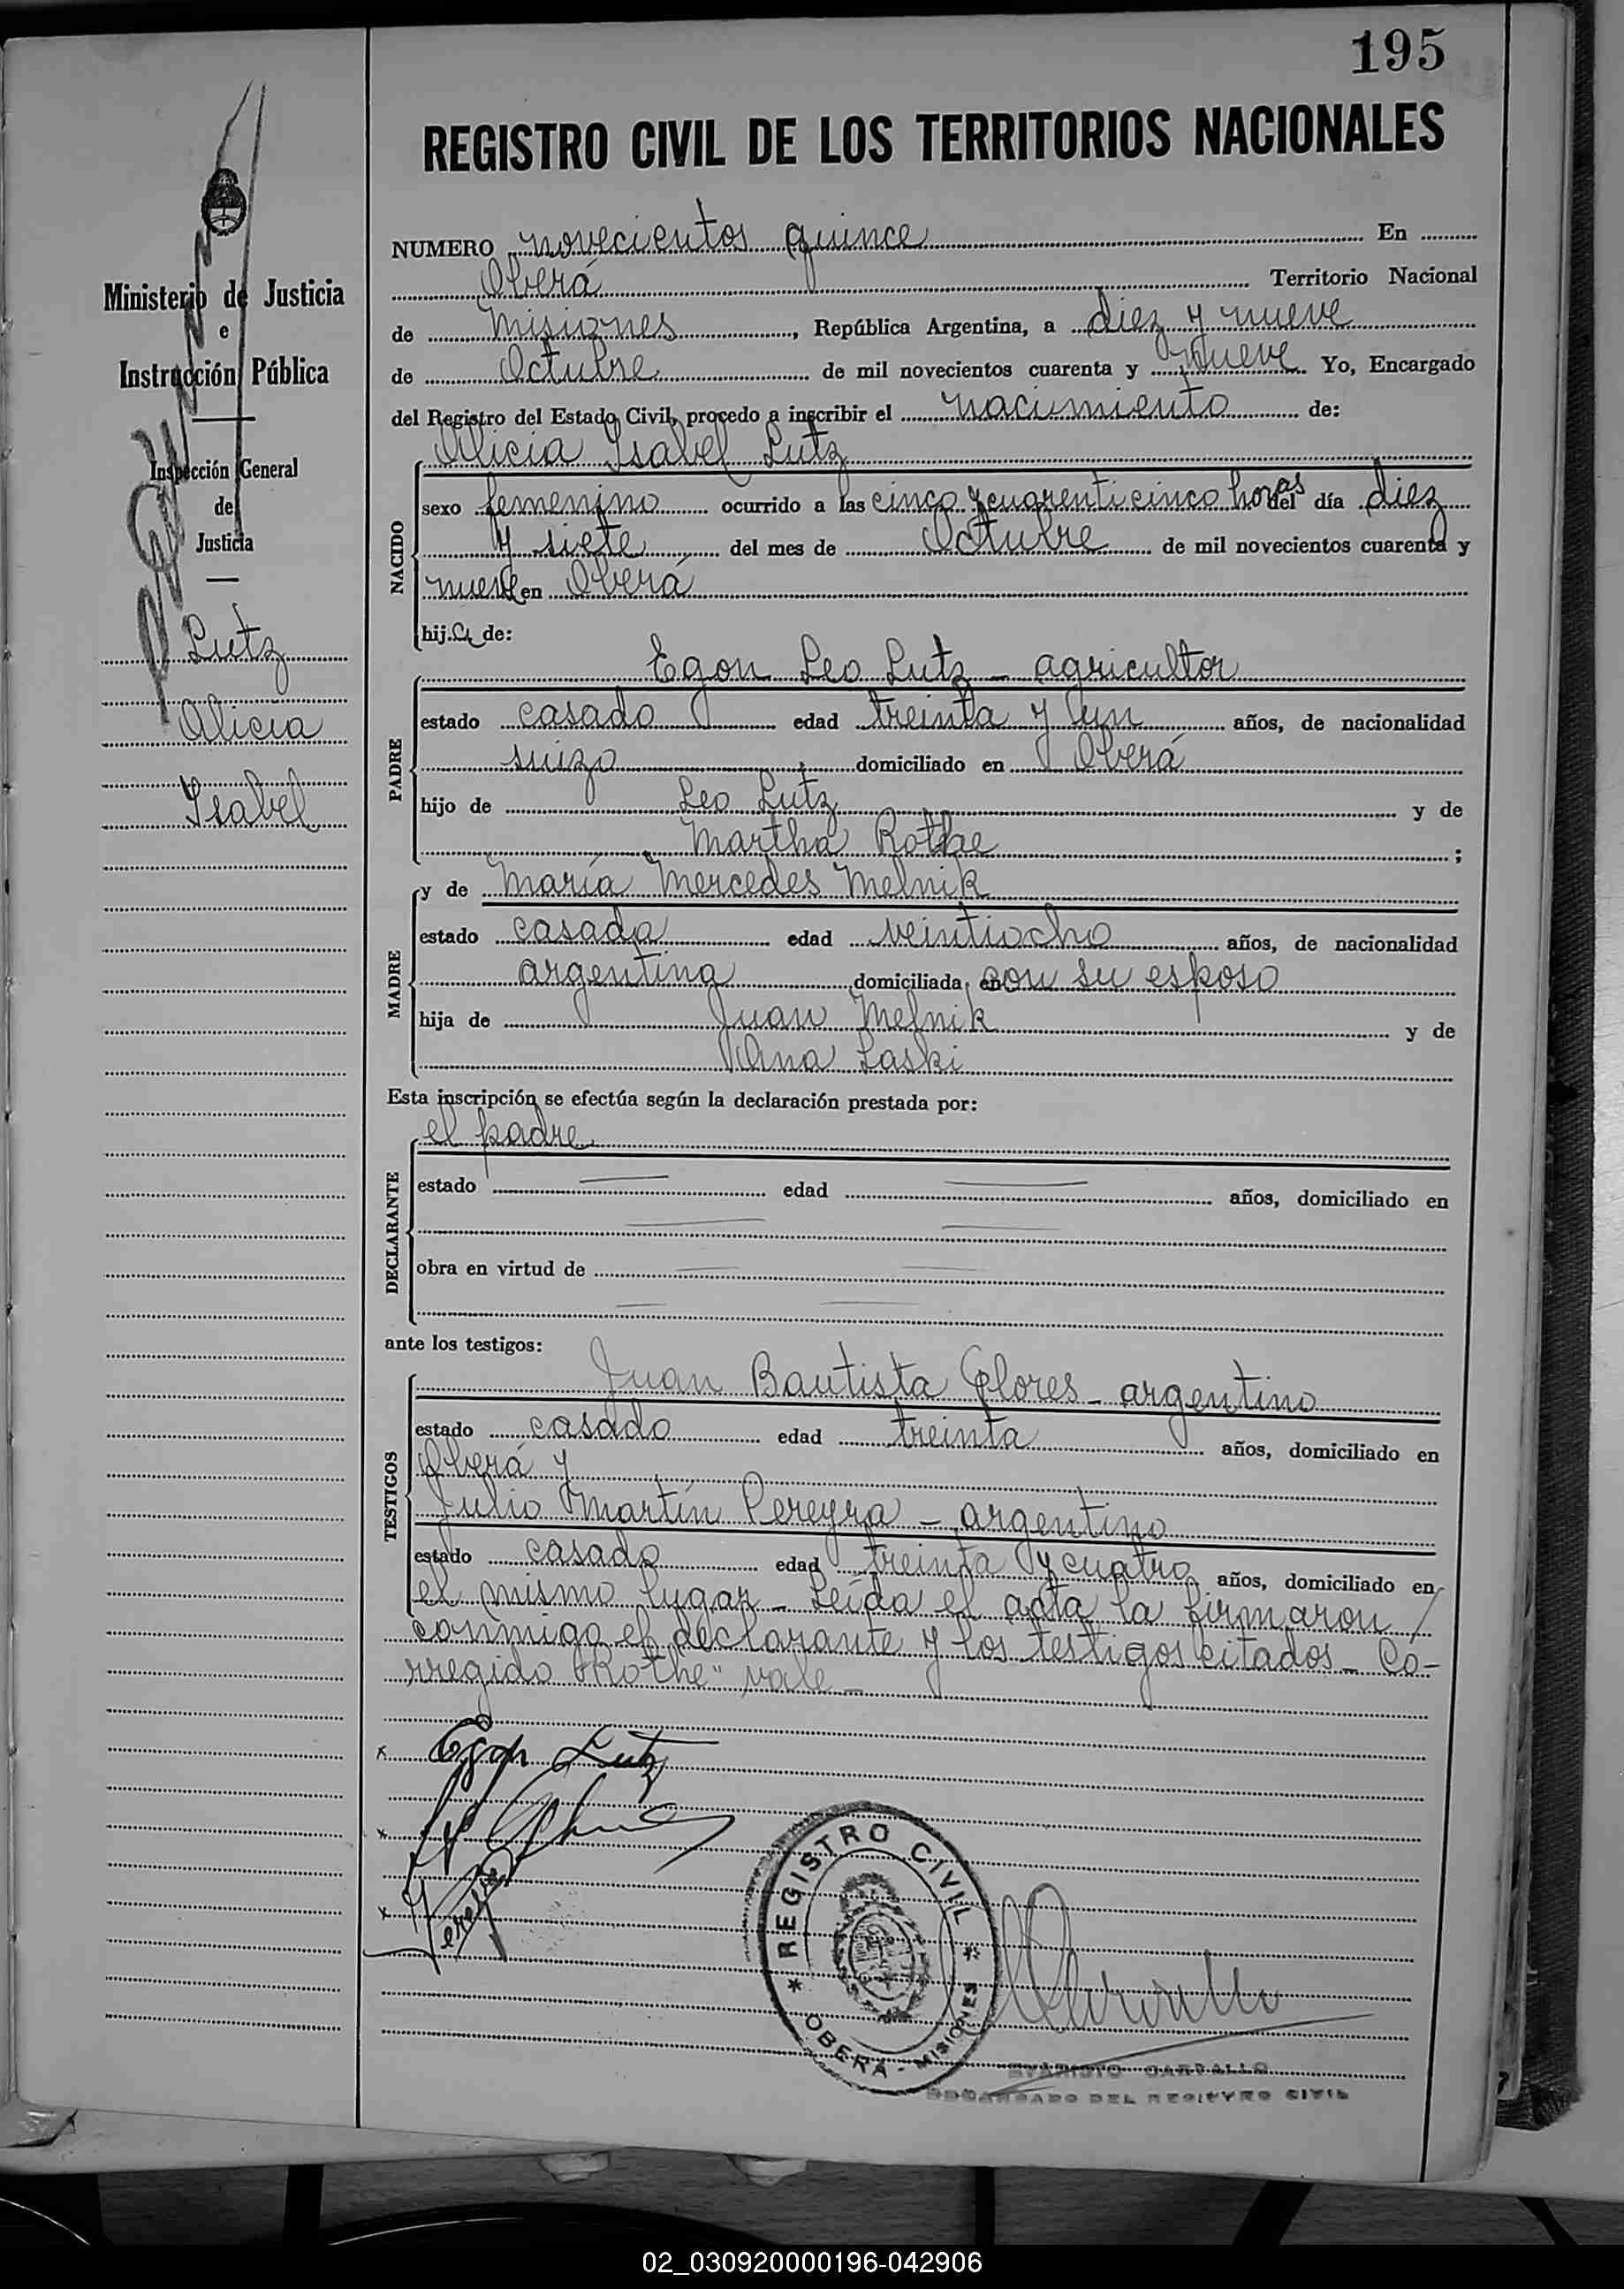 195
REGISTRO CIVIL DE LOS TERRITORIOS NACIONALES
Ministerio de Justicia
e
Instrucción Pública
Inspección General
de
Justicia
Lutz
Alicia
Isabel
NUMERO novecientos quince En
Oberá Territorio Nacional
de Misiones, República Argentina, a diez y nueve
de Octubre de mil novecientos cuarenta y nueve Yo, Encargado
del Registro del Estado Civil, procedo a inscribir el nacimiento de:
Alicia Isabel Lutz
NACIDO
sexo femenino ocurrido a las cinco y cuarenticinco horas del día diez
y siete del mes de Octubre de mil novecientos cuarenta y
nueve en Oberá
hij.a de:
Egon Leo Lutz - agricultor
PADRE
estado casado edad treinta y un años, de nacionalidad
suizo, domiciliado en Oberá
hijo de Leo Lutz y de
Martha Rothe;
MADRE
y de María Mercedes Melnik
estado casada edad veintiocho años, de nacionalidad
argentina, domiciliada en con su esposo
hija de Juan Melnik y de
Ana Laski
Esta inscripción se efectúa según la declaración prestada por:
el padre
DECLARANTE
estado edad años, domiciliado en
obra en virtud de
ante los testigos:
TESTIGOS
Juan Bautista Flores - argentino
estado casado edad treinta años, domiciliado en
Oberá y
Julio Martín Pereyra - argentino
estado casado edad treinta y cuatro años, domiciliado en
el mismo lugar - Leída el acta la firmaron
conmigo el declarante y los testigos citados - Co-
rregido "Rothe" vale -
x Egon Lutz
x
x Pereyra
REGISTRO CIVIL
OBERÁ - MISIONES
EVARISTO CARBALLO
ENCARGADO DEL REGISTRO CIVIL
02_030920000196-042906